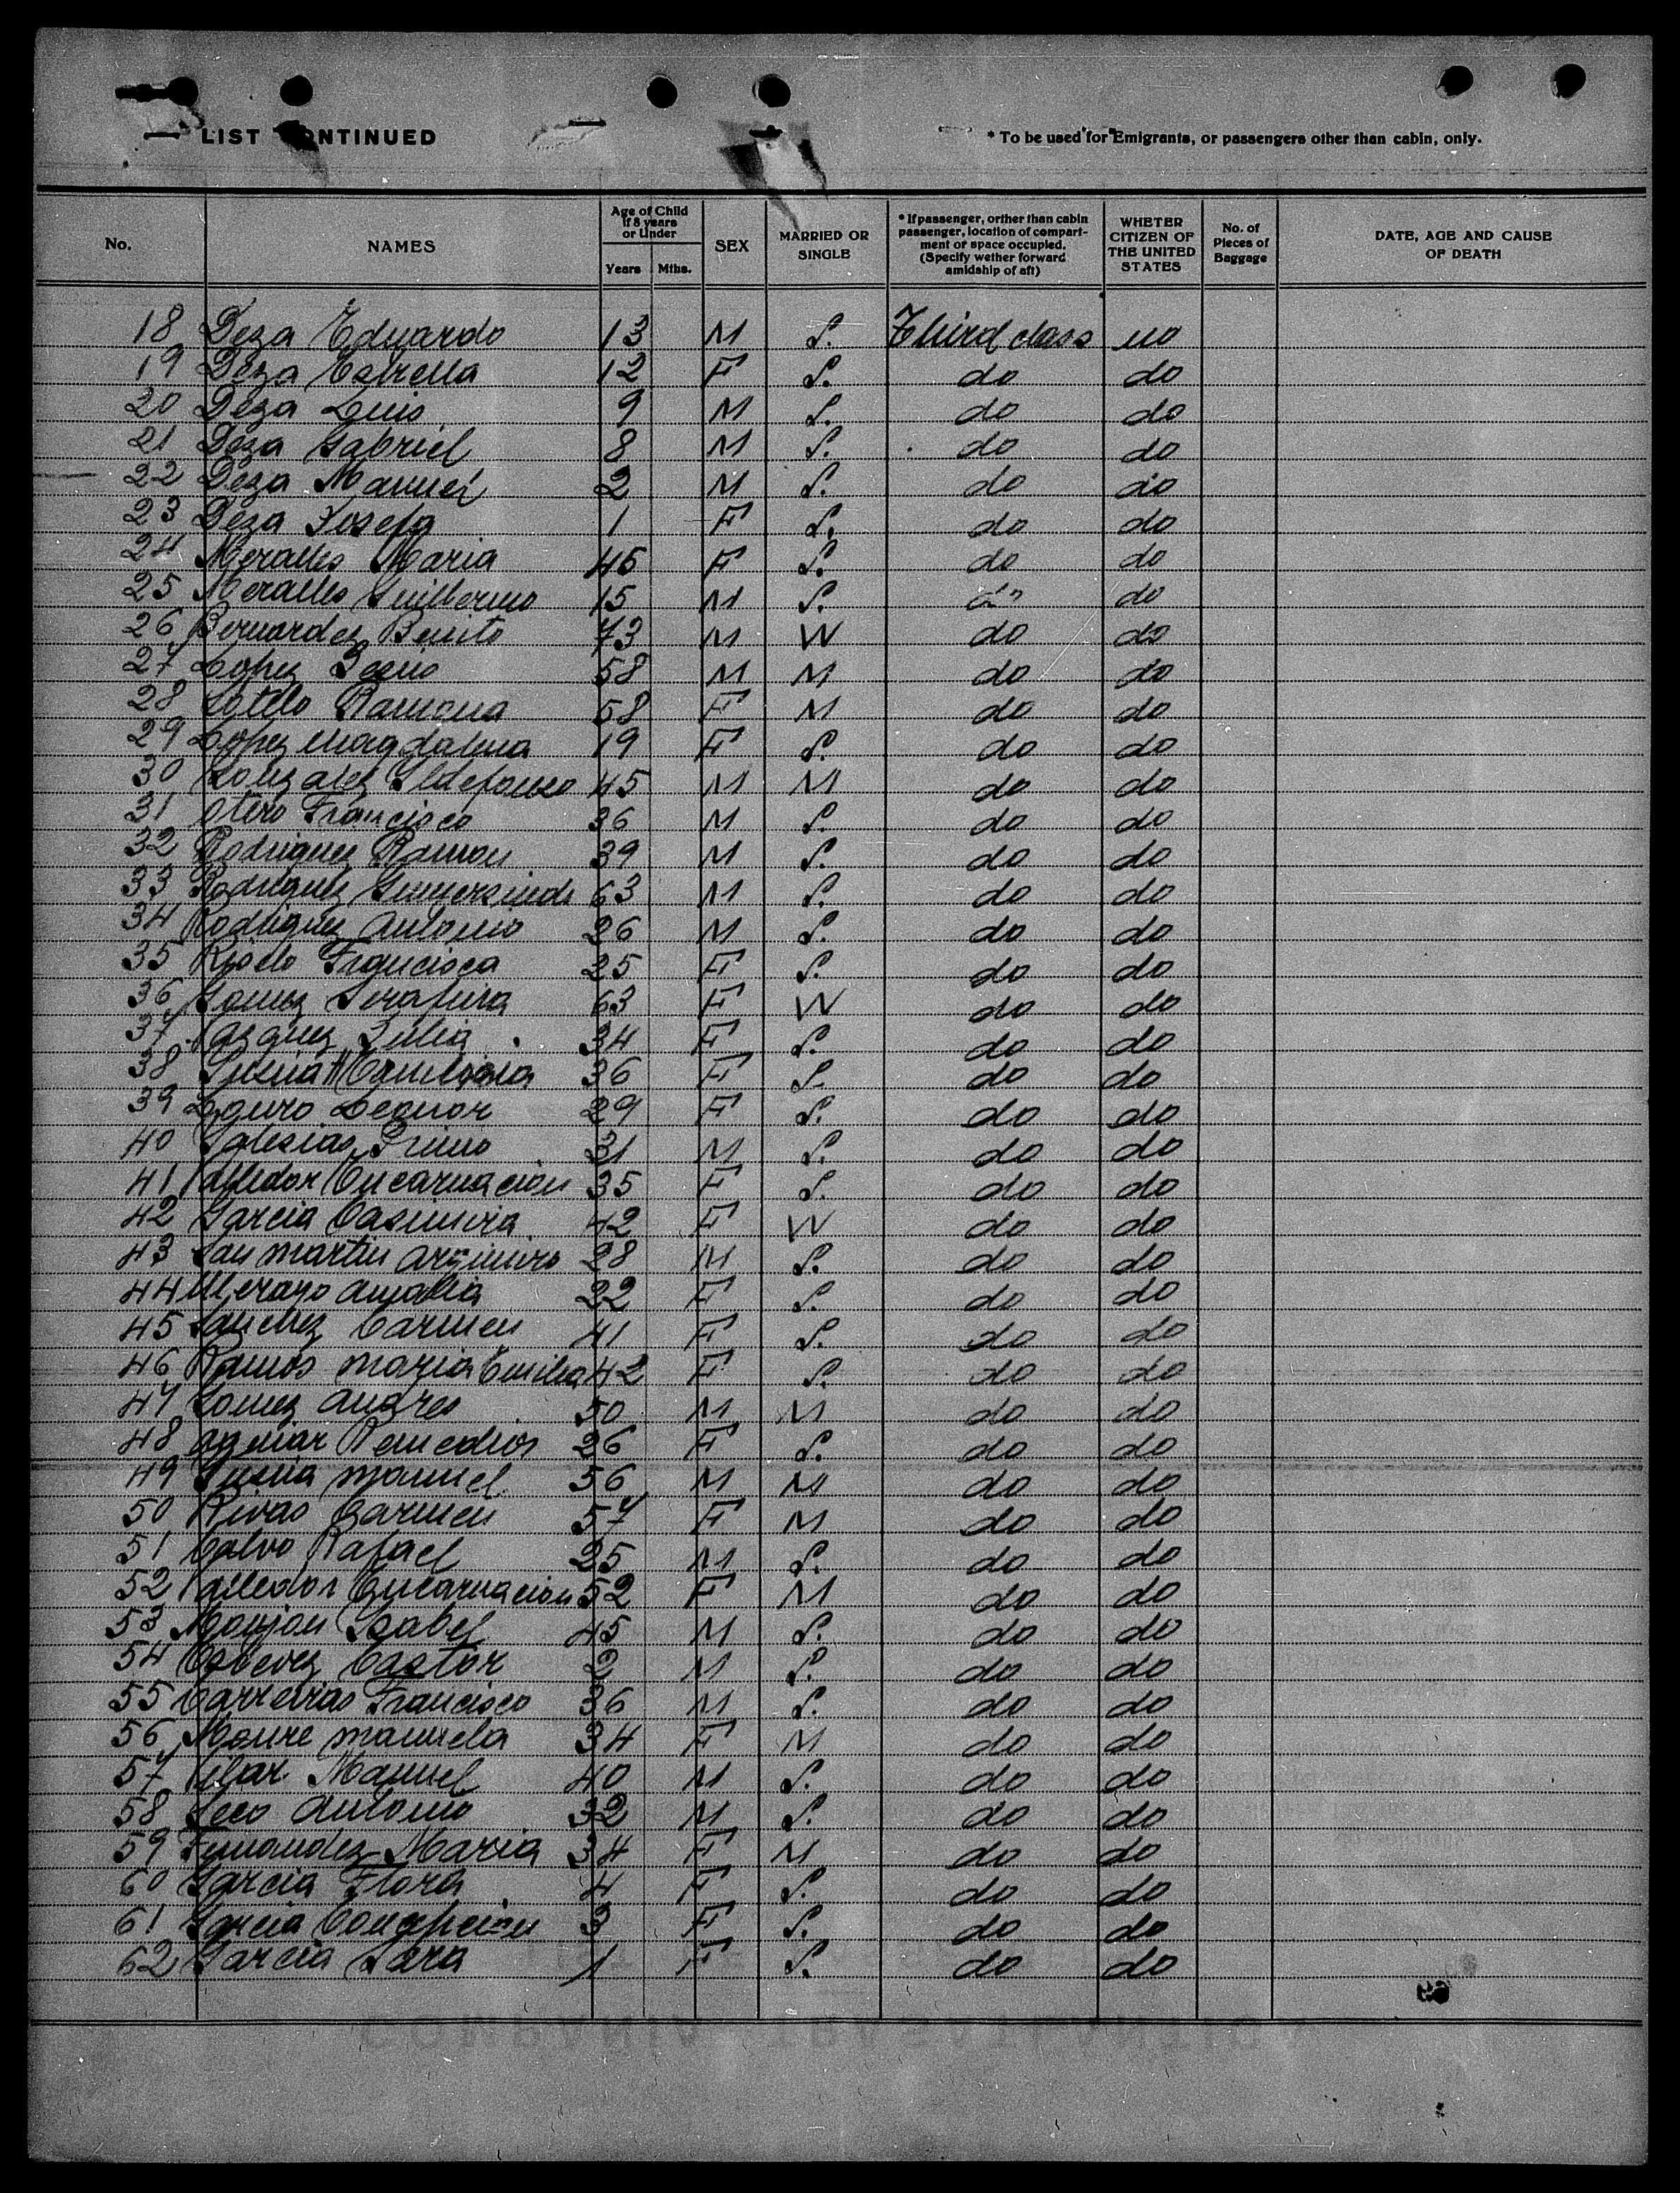 LIST CONTINUED
* To be used for Emigrants, or passengers other than cabin, only.
No. NAMES Age of Child if 8 years or Under Years Mths. SEX MARRIED OR SINGLE * If passenger, orther than cabin passenger, location of compartment or space occupied. (Specify wether forward amidship of aft) WHETER CITIZEN OF THE UNITED STATES No. of Pieces of Baggage DATE, AGE AND CAUSE OF DEATH
18 Deza Eduardo 13 M S. Third class no
19 Deza Estrella 12 F S. do do
20 Deza Luis 9 M S. do do
21 Deza Gabriel 8 M S. do do
22 Deza Manuel 2 M S. do do
23 Deza Josefa 1 F S. do do
24 Meralles Maria 46 F S. do do
25 Meralles Guillermo 15 M S. do do
26 Bernardez Benito 73 M W do do
27 Lopez 58 M M do do
28 Sotelo Ramona 58 F M do do
29 Lopez Magdalena 19 F S. do do
30 Gonzalez Ildefonso 45 M M do do
31 Otero Francisco 36 M S. do do
32 Rodriguez Ramon 39 M S. do do
33 Rodriguez Gumersindo 63 M S. do do
34 Rodriguez Antonio 26 M S. do do
35 Francisca 25 F S. do do
36 Gomez Serafina 63 F W do do
37 Vazquez 34 F S. do do
38 36 F S. do do
39 Leonor 29 F S. do do
40 Iglesias Primo 31 M S. do do
41 Valledor Encarnacion 35 F S. do do
42 Garcia Casimira 42 F W do do
43 San Martin Argimiro 28 M S. do do
44 Merayo Amalia 22 F S. do do
45 Sanchez Carmen 41 F S. do do
46 Ramos Maria Emilia 42 F S. do do
47 Gomez Andres 50 M M do do
48 Aguiar Remedios 26 F S. do do
49 Manuel 56 M M do do
50 Rivas Carmen 57 F M do do
51 Calvo Rafael 25 M S. do do
52 Valledor Encarnacion 52 F M do do
53 Isabel 45 M S. do do
54 Estevez Castor M S. do do
55 Carreiras Francisco 36 M S. do do
56 Moure Manuela 34 F M do do
57 Vilar Manuel 40 M S. do do
58 Seco Antonio 32 M S. do do
59 Fernandez Maria 34 F M do do
60 Garcia Flora 4 F S. do do
61 Garcia Concepcion 3 F S. do do
62 Garcia Sara 1 F S. do do